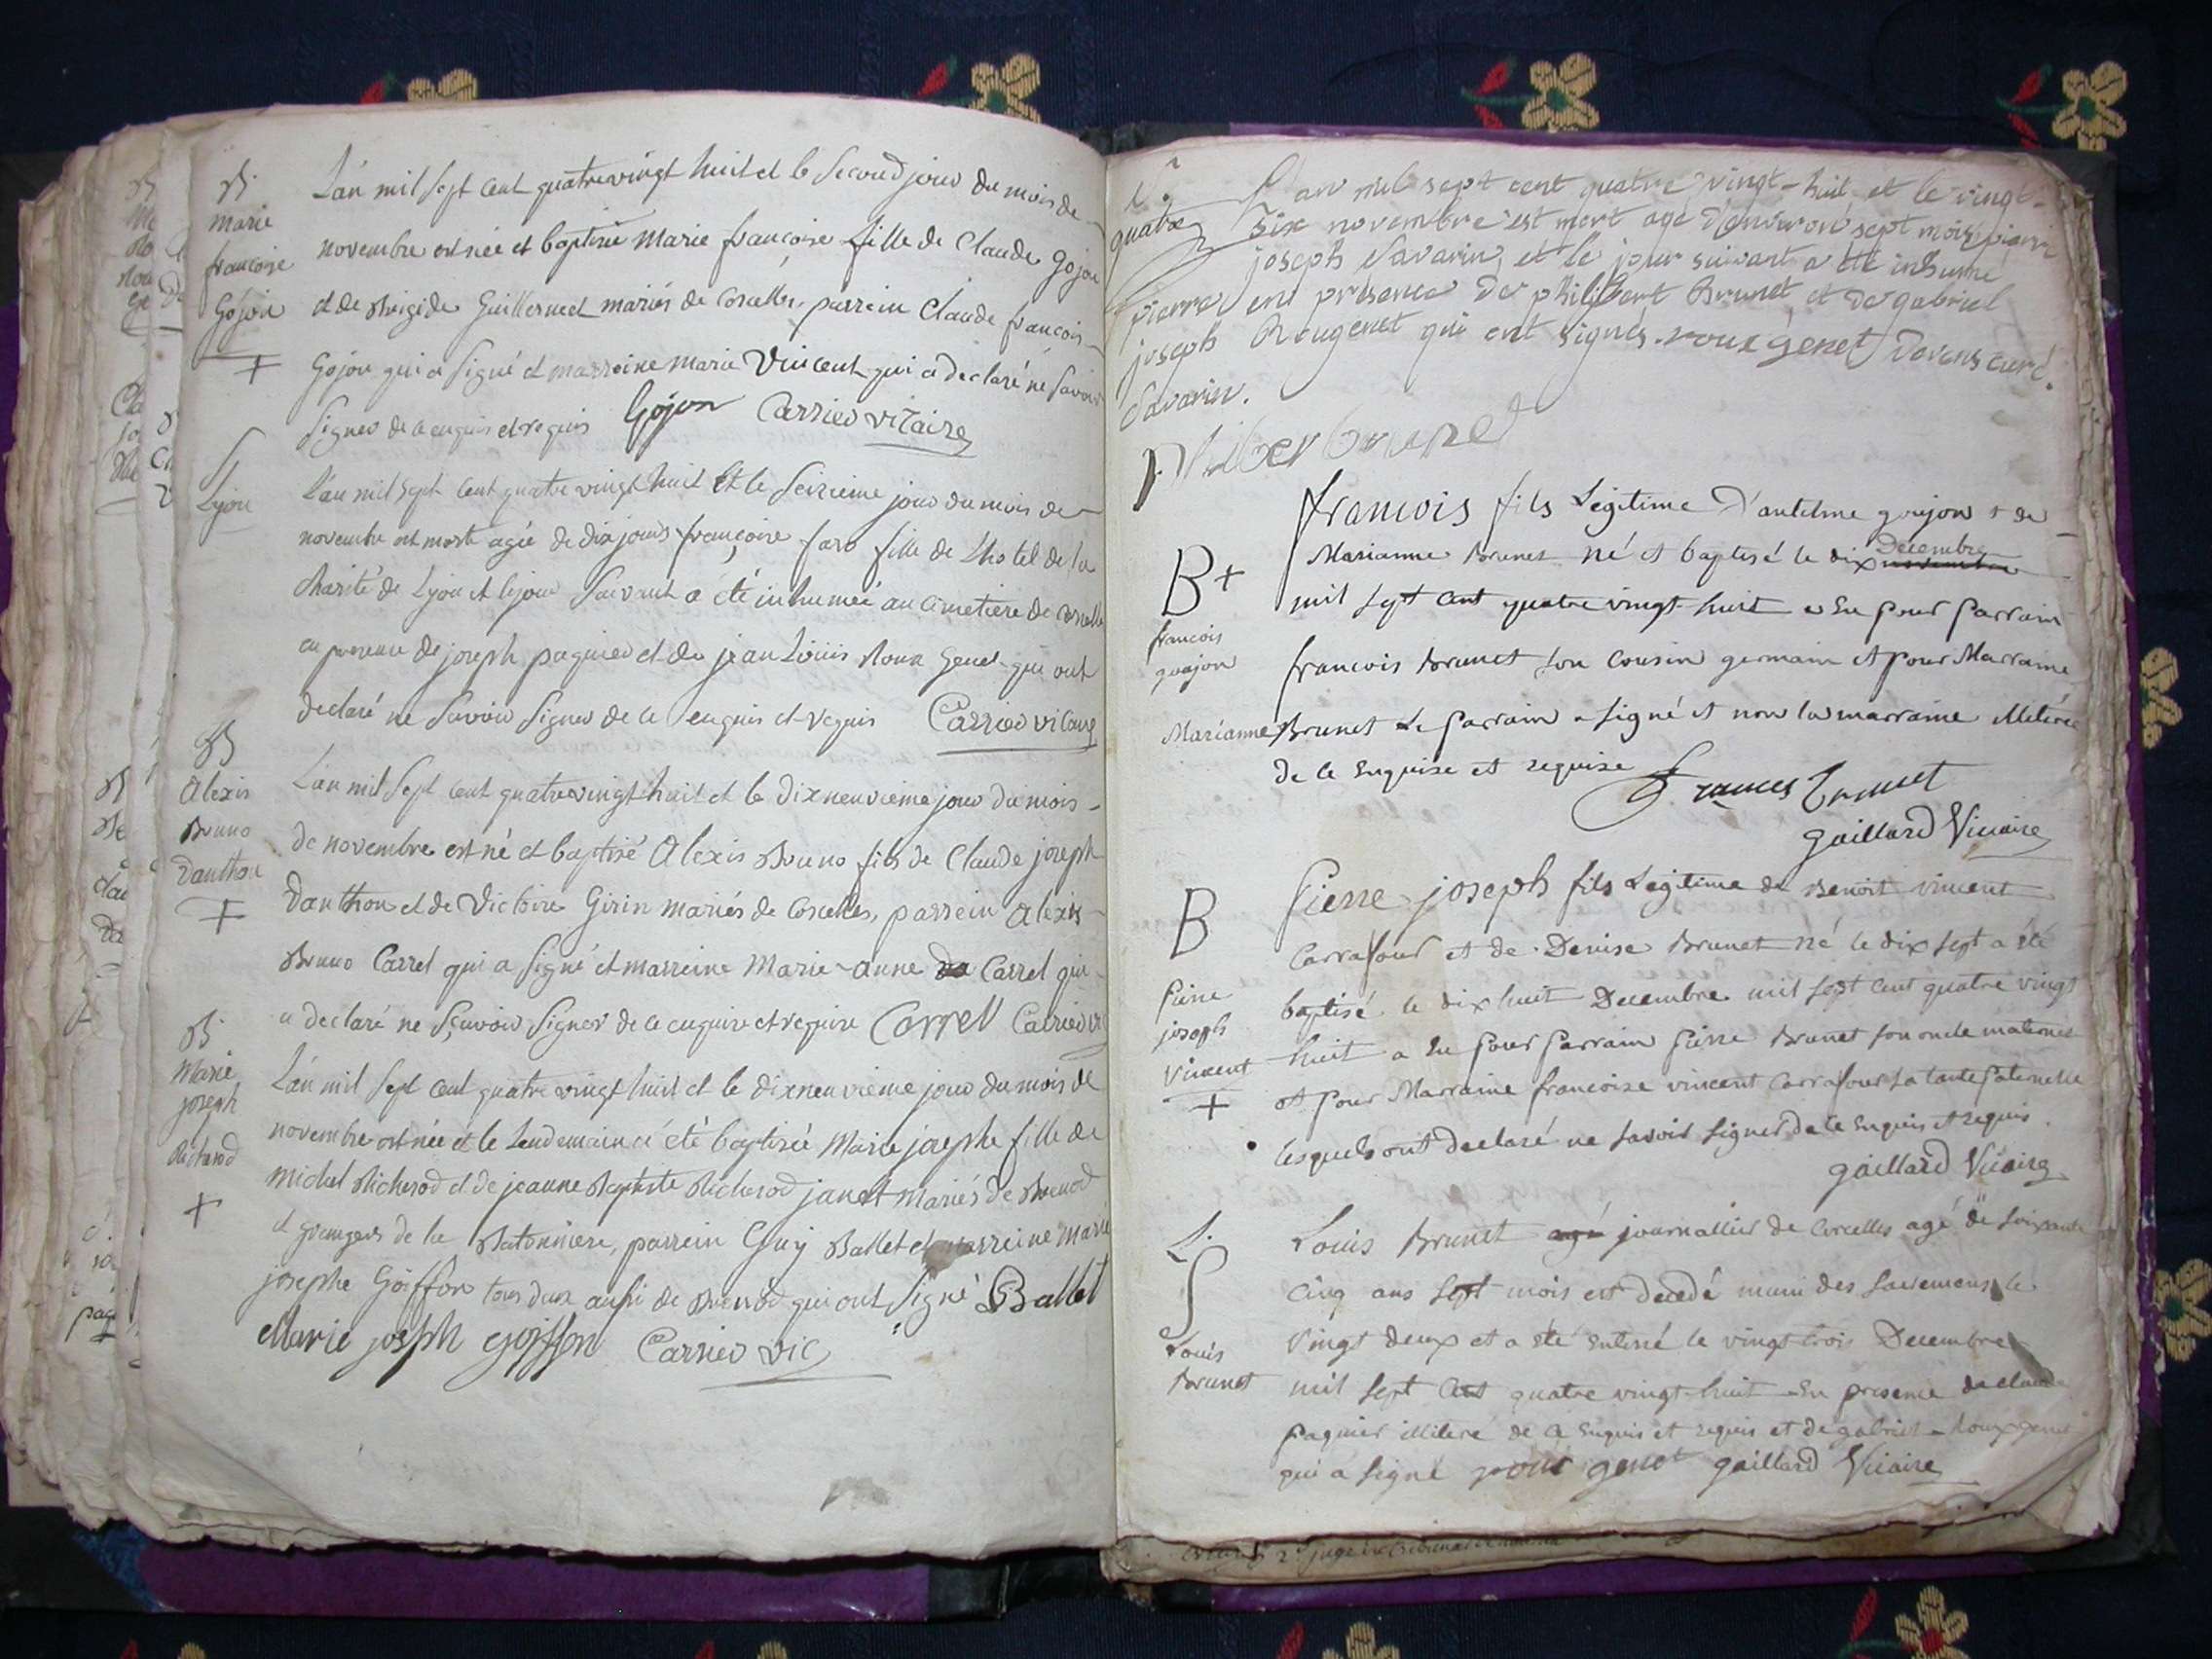 B.
marie
francoise
Gojon
+
L'an mil sept cent quatrevingt huit et le second jour du mois de
novembre est née et baptisée Marie françoise fille de Claude Gojon
et de Brigide Guillermet mariés de Corcelles, parrein Claude francois
Gojon qui a signé et marreine Marie Vincent qui a declaré ne savoir
signer de ce enquis et requis Gojon Carrier vicaire
Lyon
L'an mil sept cent quatre vingt huit et le seizieme jour du mois de
novembre est morte agée de dix jours françoise fille de L'hotel de la
charité de Lyon et le jour suivant a été inhumée au cimetiere de Corcelle
en presence de joseph paguier et de jean Loüis Roux Genet qui ont
declaré ne savoir signer de ce enquis et requis Carrier vicaire
B
Alexis
Bruno
Danthon
+
L'an mil sept cent quatrevingt huit et le dixneuvieme jour du mois
de novembre est né et baptisé Alexis Bruno fils de Claude joseph
Danthon et de Victoire Girin mariés de Corcelles, parrein Alexis
Bruno Carrel qui a signé et marreine Marie-anne Carrel qui
a declaré ne sçavoir signer de ce enquise et requise Carrel Carrier vic
B.
Marie
joseph
Richerod
+
L'an mil sept cent quatre vingt huit et le dixneuvieme jour du mois de
novembre est née et le Lendemain a été baptisée Marie josephe fille de
Michel Richerod et de jeanne Baptiste Richerod janet mariés de Brenod
et grangers de la Batonniere, parrein Guy Ballet et marreine Marie
josephe Goiffon tous deux aussi de Brenod qui ont signé Ballet
Marie joseph goiffon Carrier vic
quatre
L'an mil sept cent quatre vingt-huit et le vingt-
six novembre est mort agé d'environ sept mois pierre
joseph Savarin, et le jour suivant a été inhumé
pierre en presence de philibert Brunet et de gabriel
joseph Rougenet qui ont signés. rouxgenet Davans curé.
Savarin.
philiber brunet
B+
francois
goujon
francois fils Légitime d'antelme goujon + de
Marianne Brunet né et baptisé le dix Decembre
mil sept cent quatre vingt-huit a Eu pour parrain
francois Brunet son Cousin germain et pour Marraine
Marianne Brunet Le parrain a signé et non la marraine illitérée
de ce Enquise et requise
francois brunet
gaillard Vicaire
B
Pierre
joseph
Vincent
+
Pierre joseph fils Légitime de Benoit vincent
Carrafour et de Denise Brunet né le dix sept a été
baptisé le dix huit Decembre mil sept cent quatre vingt
huit a Eu pour parrain Pierre Brunet son oncle maternel
et pour Marraine francoise vincent Carrafour sa tante paternelle
lesquels ont declaré ne savoir signer de ce Enquis et requis.
gaillard Vicaire
S
Louis
Brunet
Louis Brunet journallier de Corcelles agé de soixante
cinq ans sept mois est decedé muni des sacremens le
vingt deux et a été enterré le vingt-trois Decembre
mil sept cent quatre vingt-huit En presence de claude
paguier illiteré de ce Enquis et requis et de gabriel Rouxgenet
qui a signé roux genet gaillard Vicaire